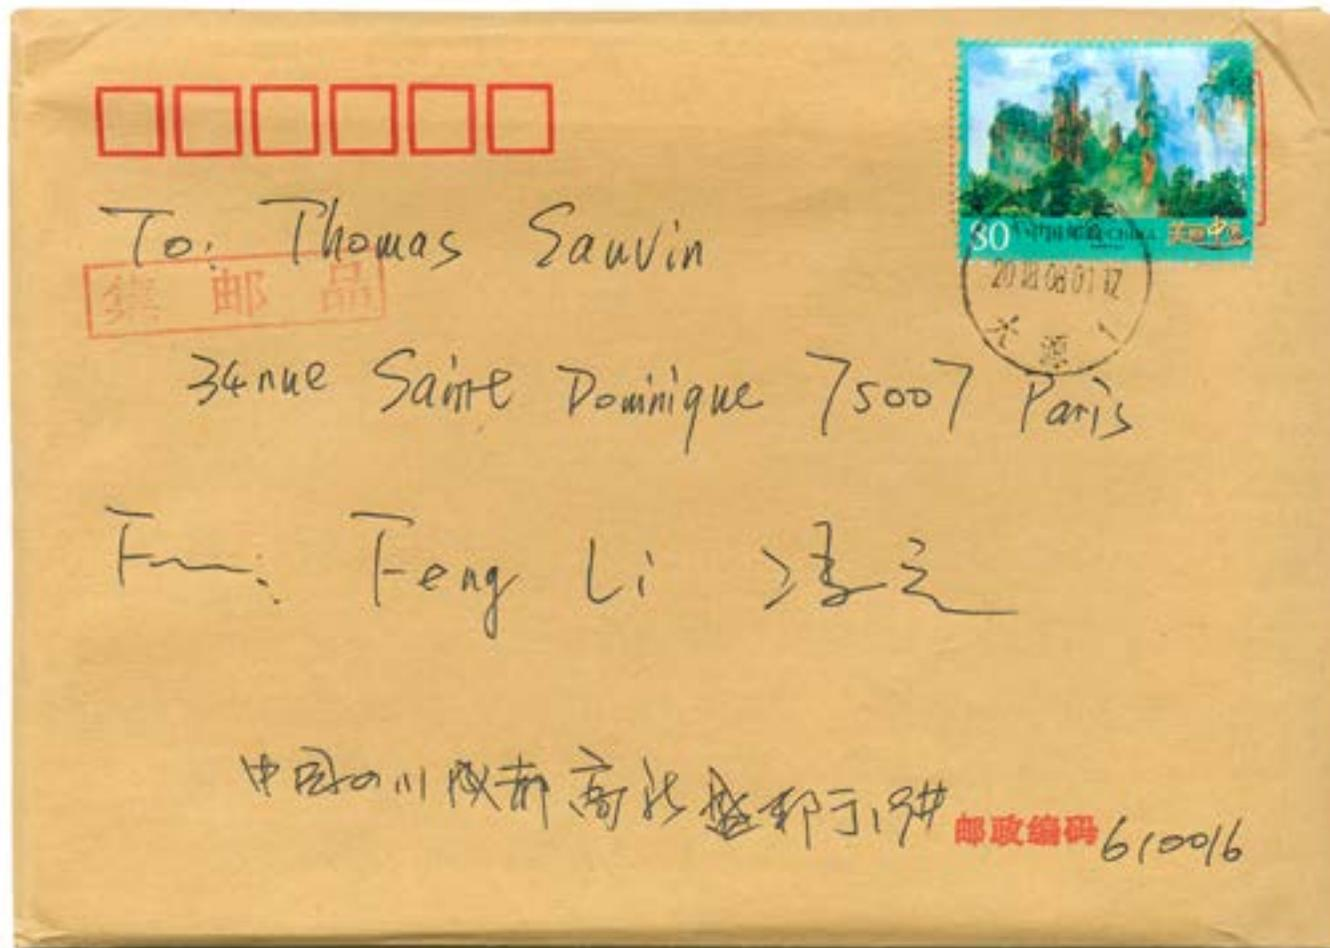 To: Thomas Sauvin
集邮品
80 中国邮政 CHINA 美丽中国
2018.08.01.17
源
34 rue Sainte Dominique 75007 Paris
From: Feng Li 冯立
中国四川成都高新盛邦街
邮政编码 610016